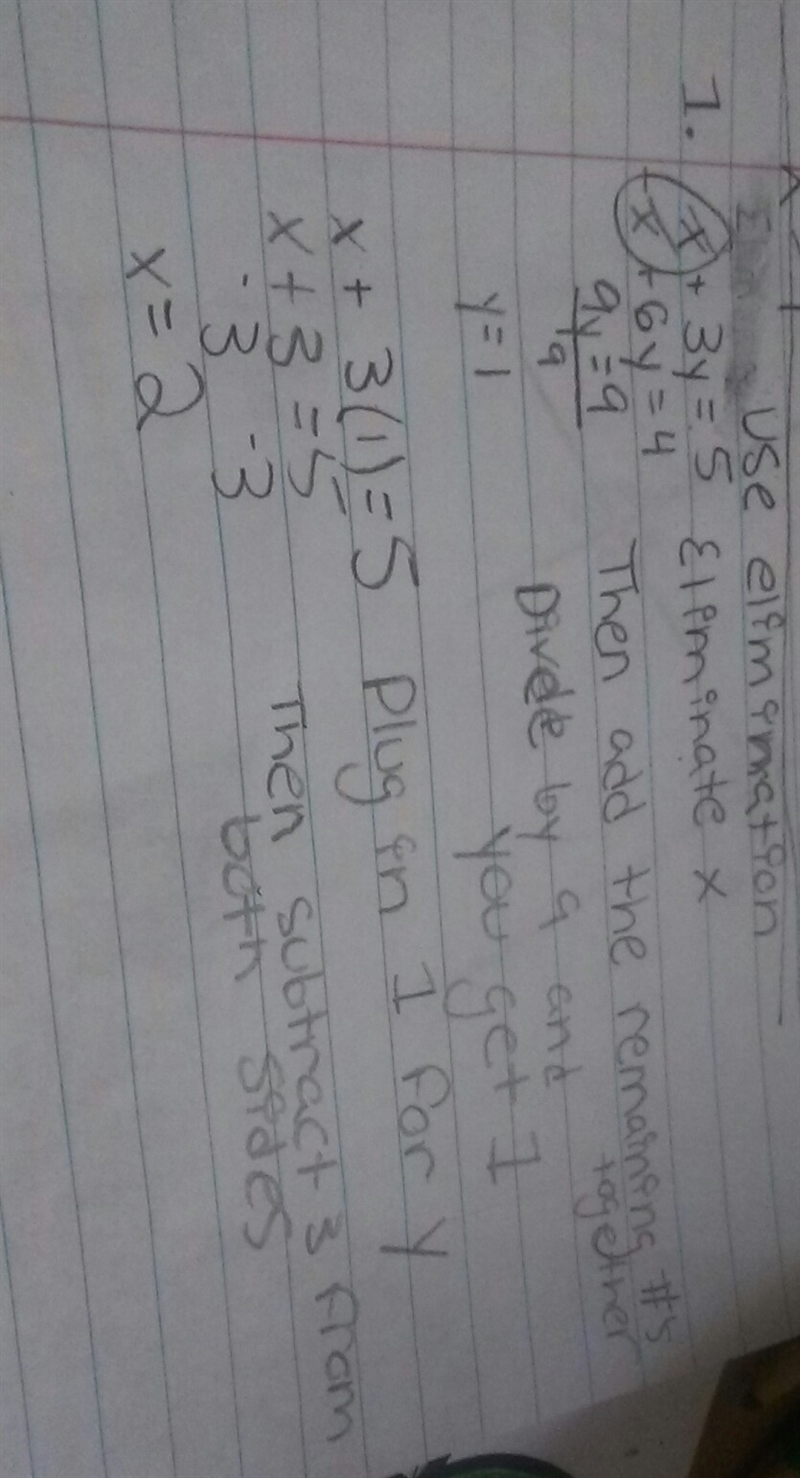 Use elimination
1. x + 3y = 5 Eliminate x
-x + 6y = 4
9y = 9 Then add the remaining #s together
9 Divide by 9 and
y = 1 you get 1
x + 3(1) = 5 Plug in 1 for y
x + 3 = 5 Then subtract 3 from
-3 -3 both sides
x = 2